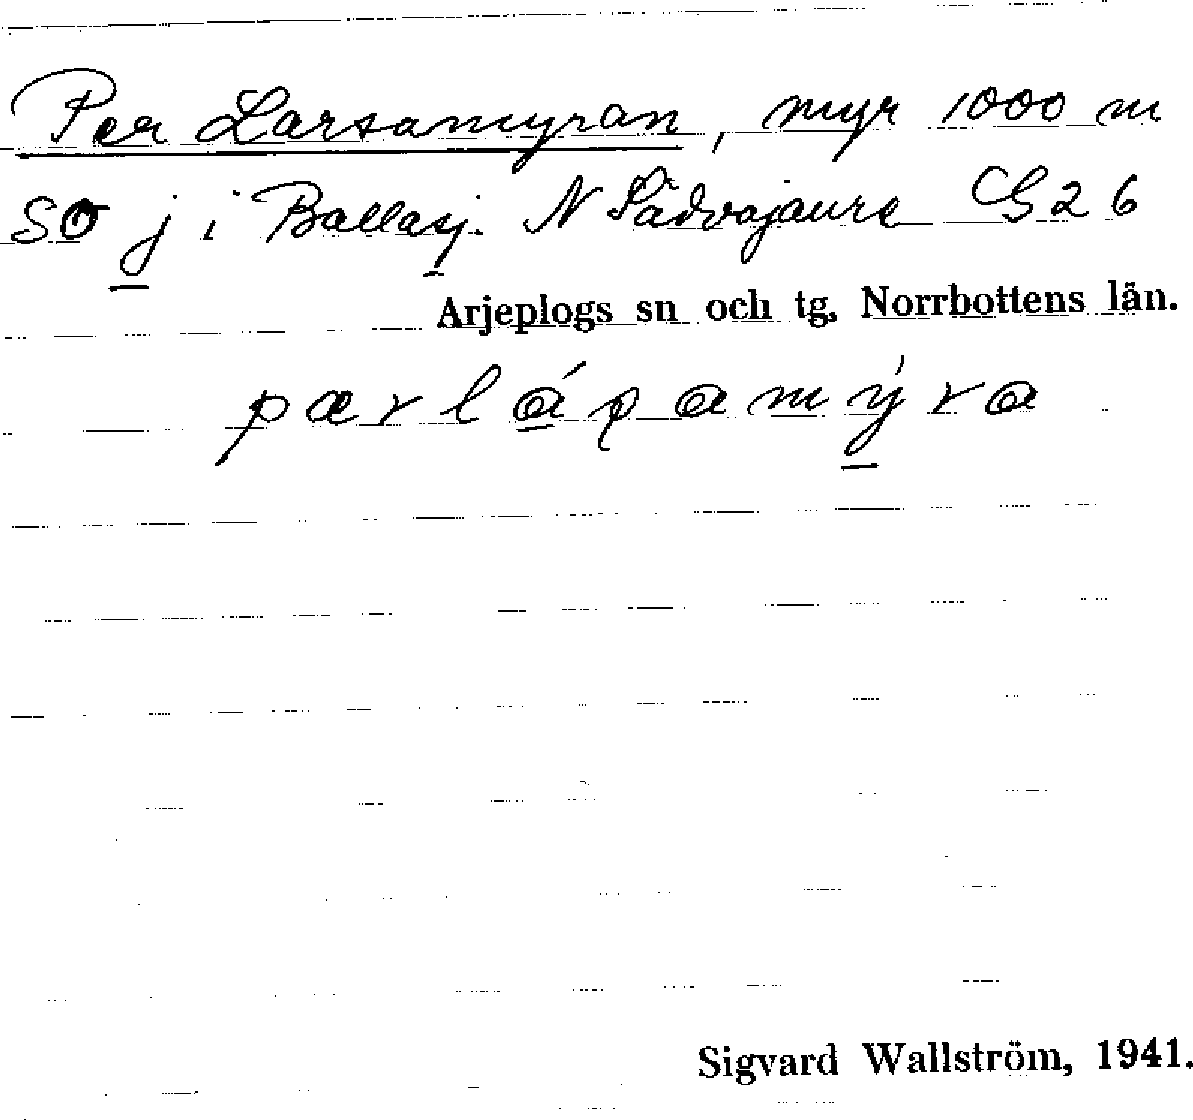 Per Larsamyran, myr 1000 m
SO j i Ballasj. N Sädvajaure G 26
Arjeplogs sn och tg. Norrbottens län.
Sigvard Wallström, 1941.